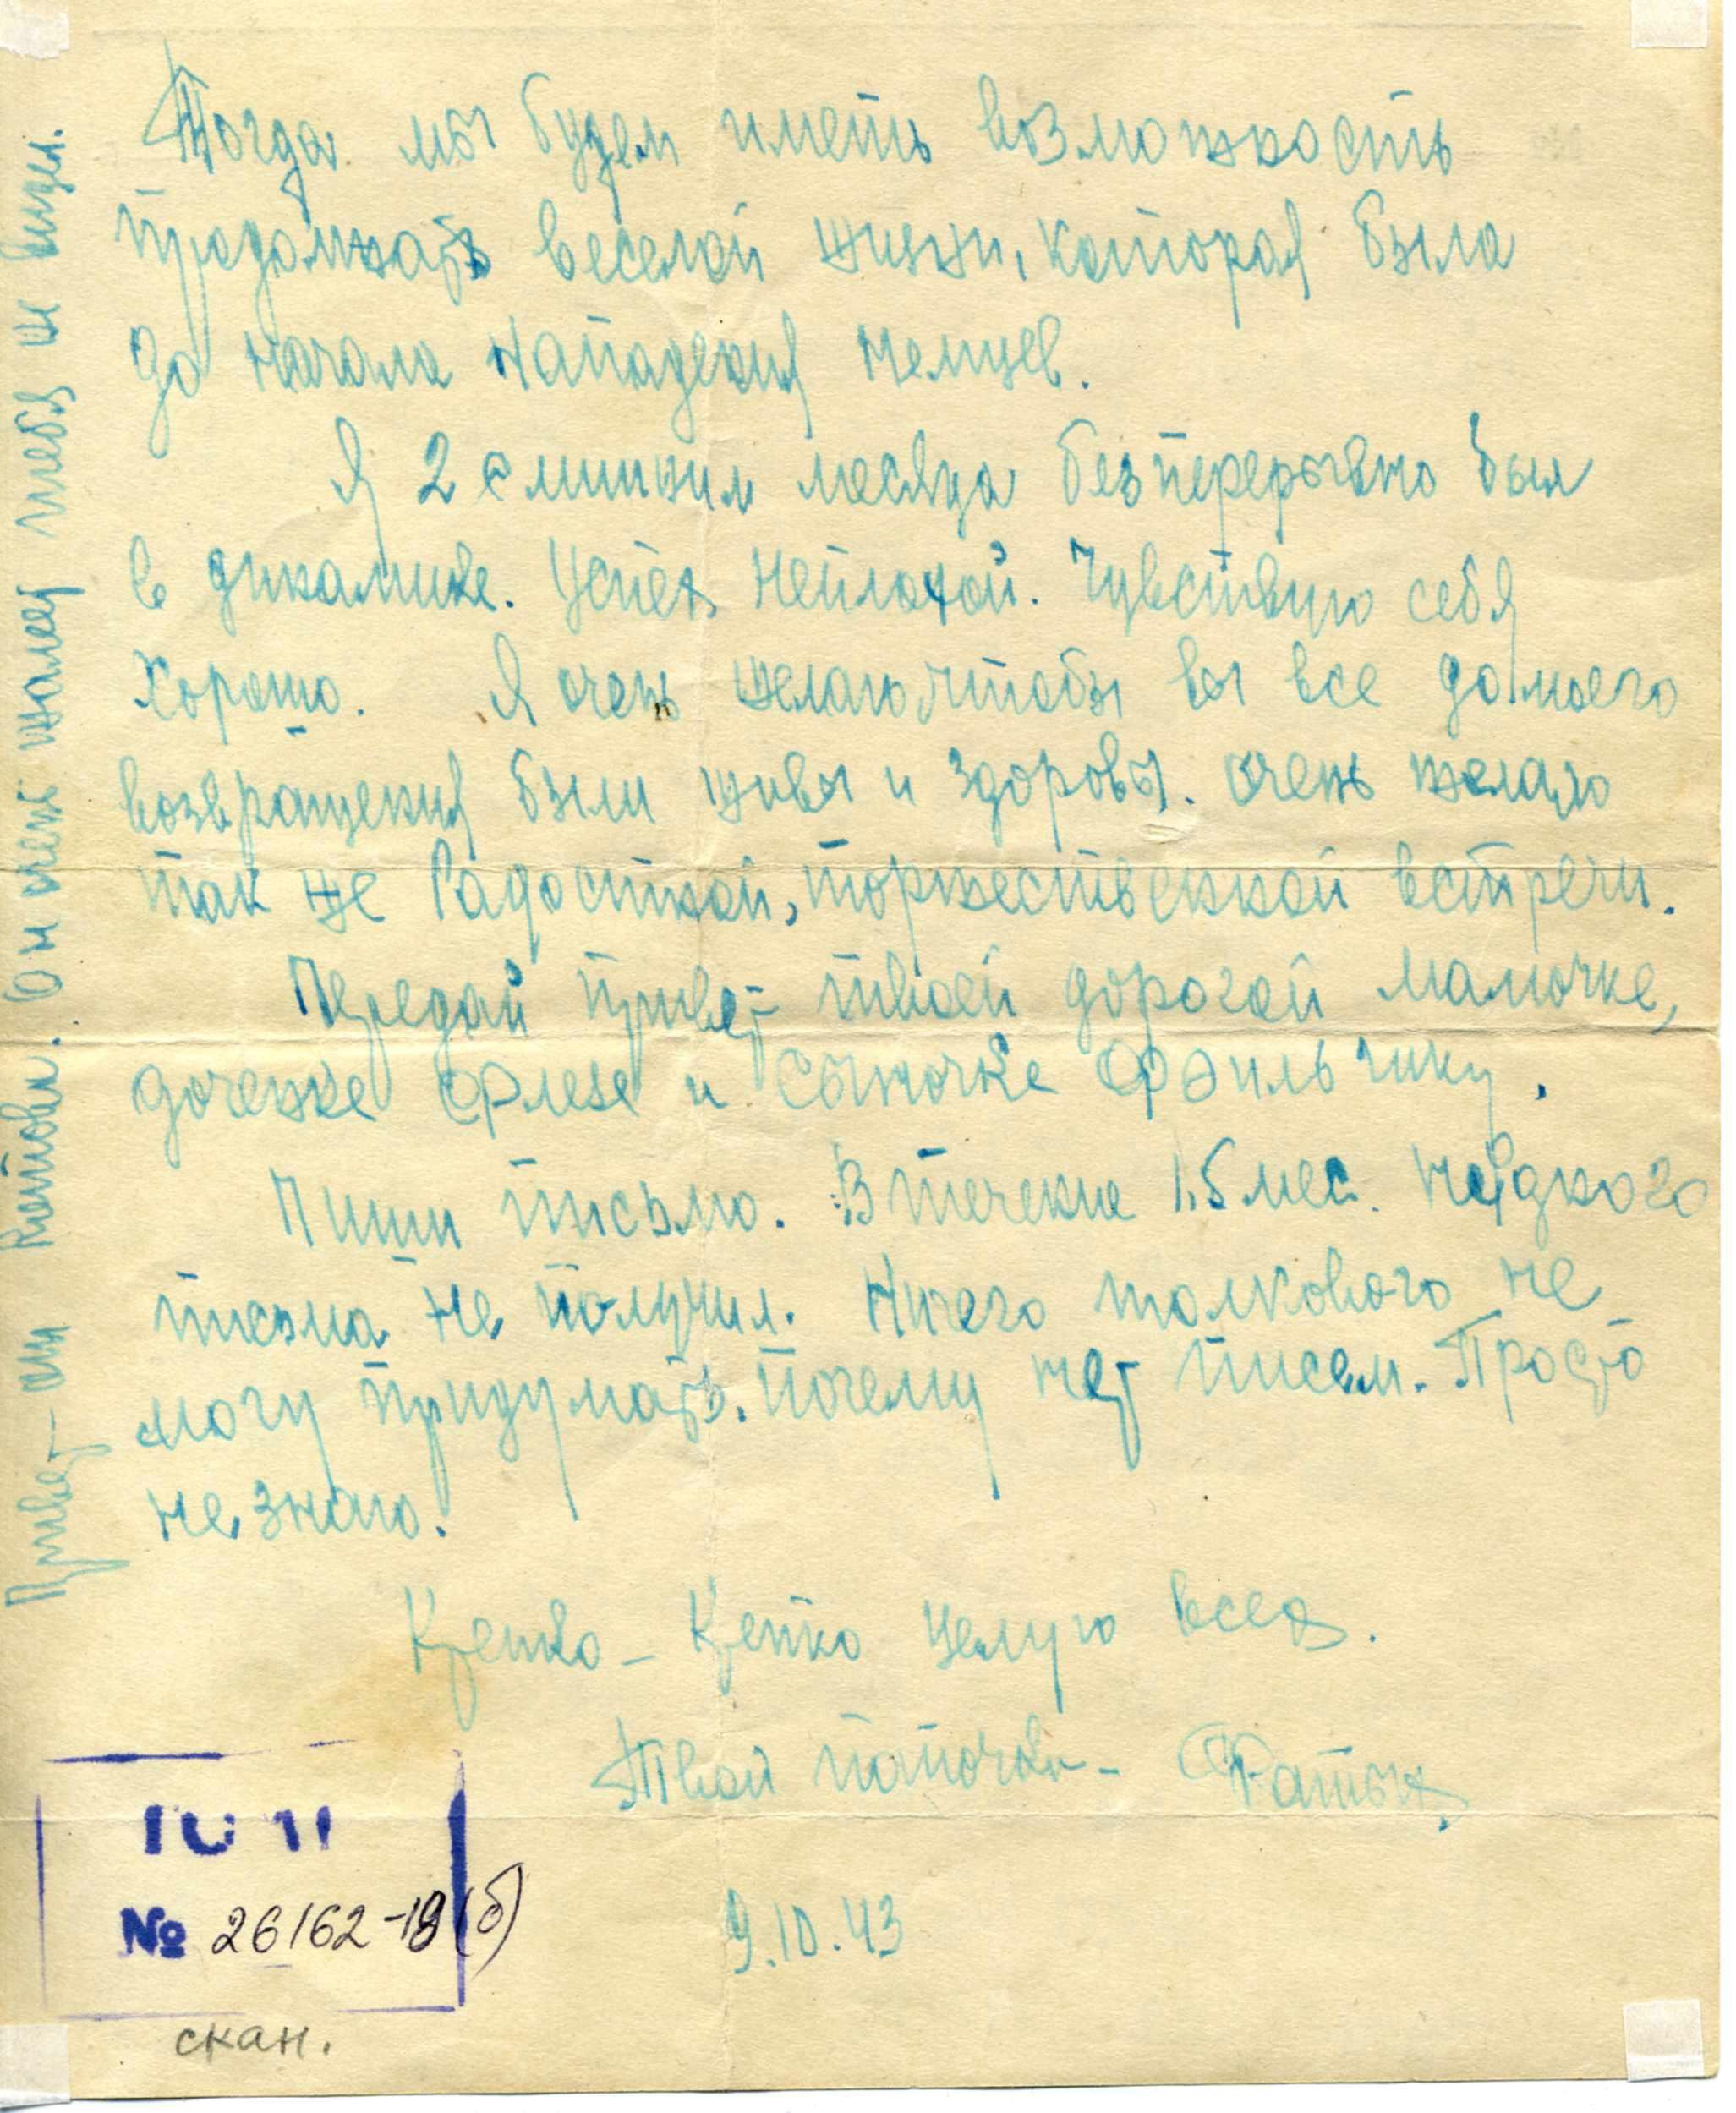 Тогда мы будем иметь возможность
продолжать веселой жизни, которая была
до начала нападения немцев.
Я 2 с лишним месяца безперерывно был
в Успех неплохой. Чувствую себя
хорошо. Я очень желаю чтобы вы все до моего
возвращения были живы и здоровы. Очень желаю
так же радостной, торжественной встречи.
Передай привет твоей дорогой мамочке,
доченьке и сыночке Фэильчику.
Пиши письмо. В течение 1,5 мес. ни одного
письма не получил. Ничего толкового не
могу придумать. почему нет писем. Просто
не знаю.
Крепко - Крепко целую всех.
Твой папочка -
9.10.43
№ 26162-18(б)
скан.
Привет от Котова. Он очень жалеет тебя и